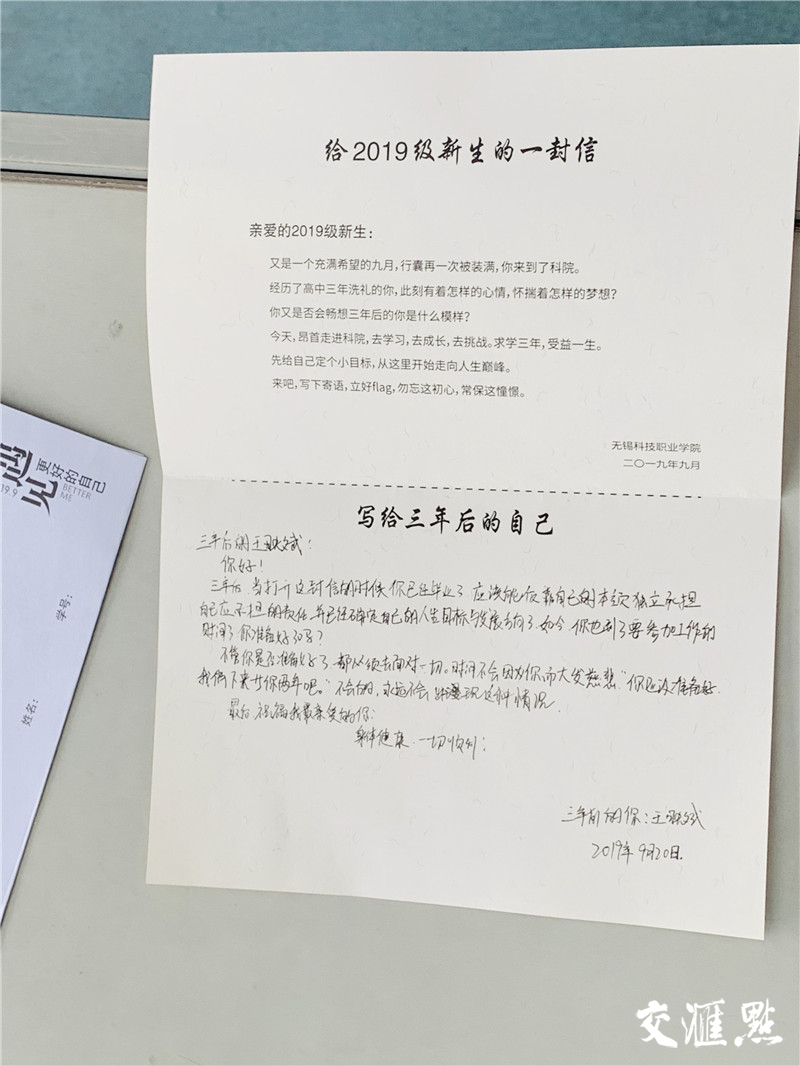 给2019级新生的一封信
亲爱的2019级新生：
又是一个充满希望的九月，行囊再一次被装满，你来到了科院。
经历了高中三年洗礼的你，此刻有着怎样的心情，怀揣着怎样的梦想？
你又是否会畅想三年后的你是什么模样？
今天，昂首走进科院，去学习，去成长，去挑战。求学三年，受益一生。
先给自己定个小目标，从这里开始走向人生巅峰。
来吧，写下寄语，立好flag，勿忘这初心，常保这憧憬。
无锡科技职业学院
二〇一九年九月
写给三年后的自己
三年后的王
你好！
三年后，当打开这封信的时候你已经毕业了 应该能依靠自己的本领 独立承担
自己应承担的责任，并已经确定自己的人生目标与发展方向了。如今 你也到了要参加工作的
时间了 你准备好了吗？
不管你是否准备好了 都必须去面对一切。时间不会因为你而大发慈悲“你还没准备好
我停下来廿你两年吧。”不会的，永远不会 出现这种情况
最后 祝福我最亲爱的你：
身体健康 一切顺利；
三年前的你：王
2019年9月20日.
遇见
更好的自己
BETTER
ME
19.9
学号：
姓名：
交汇点